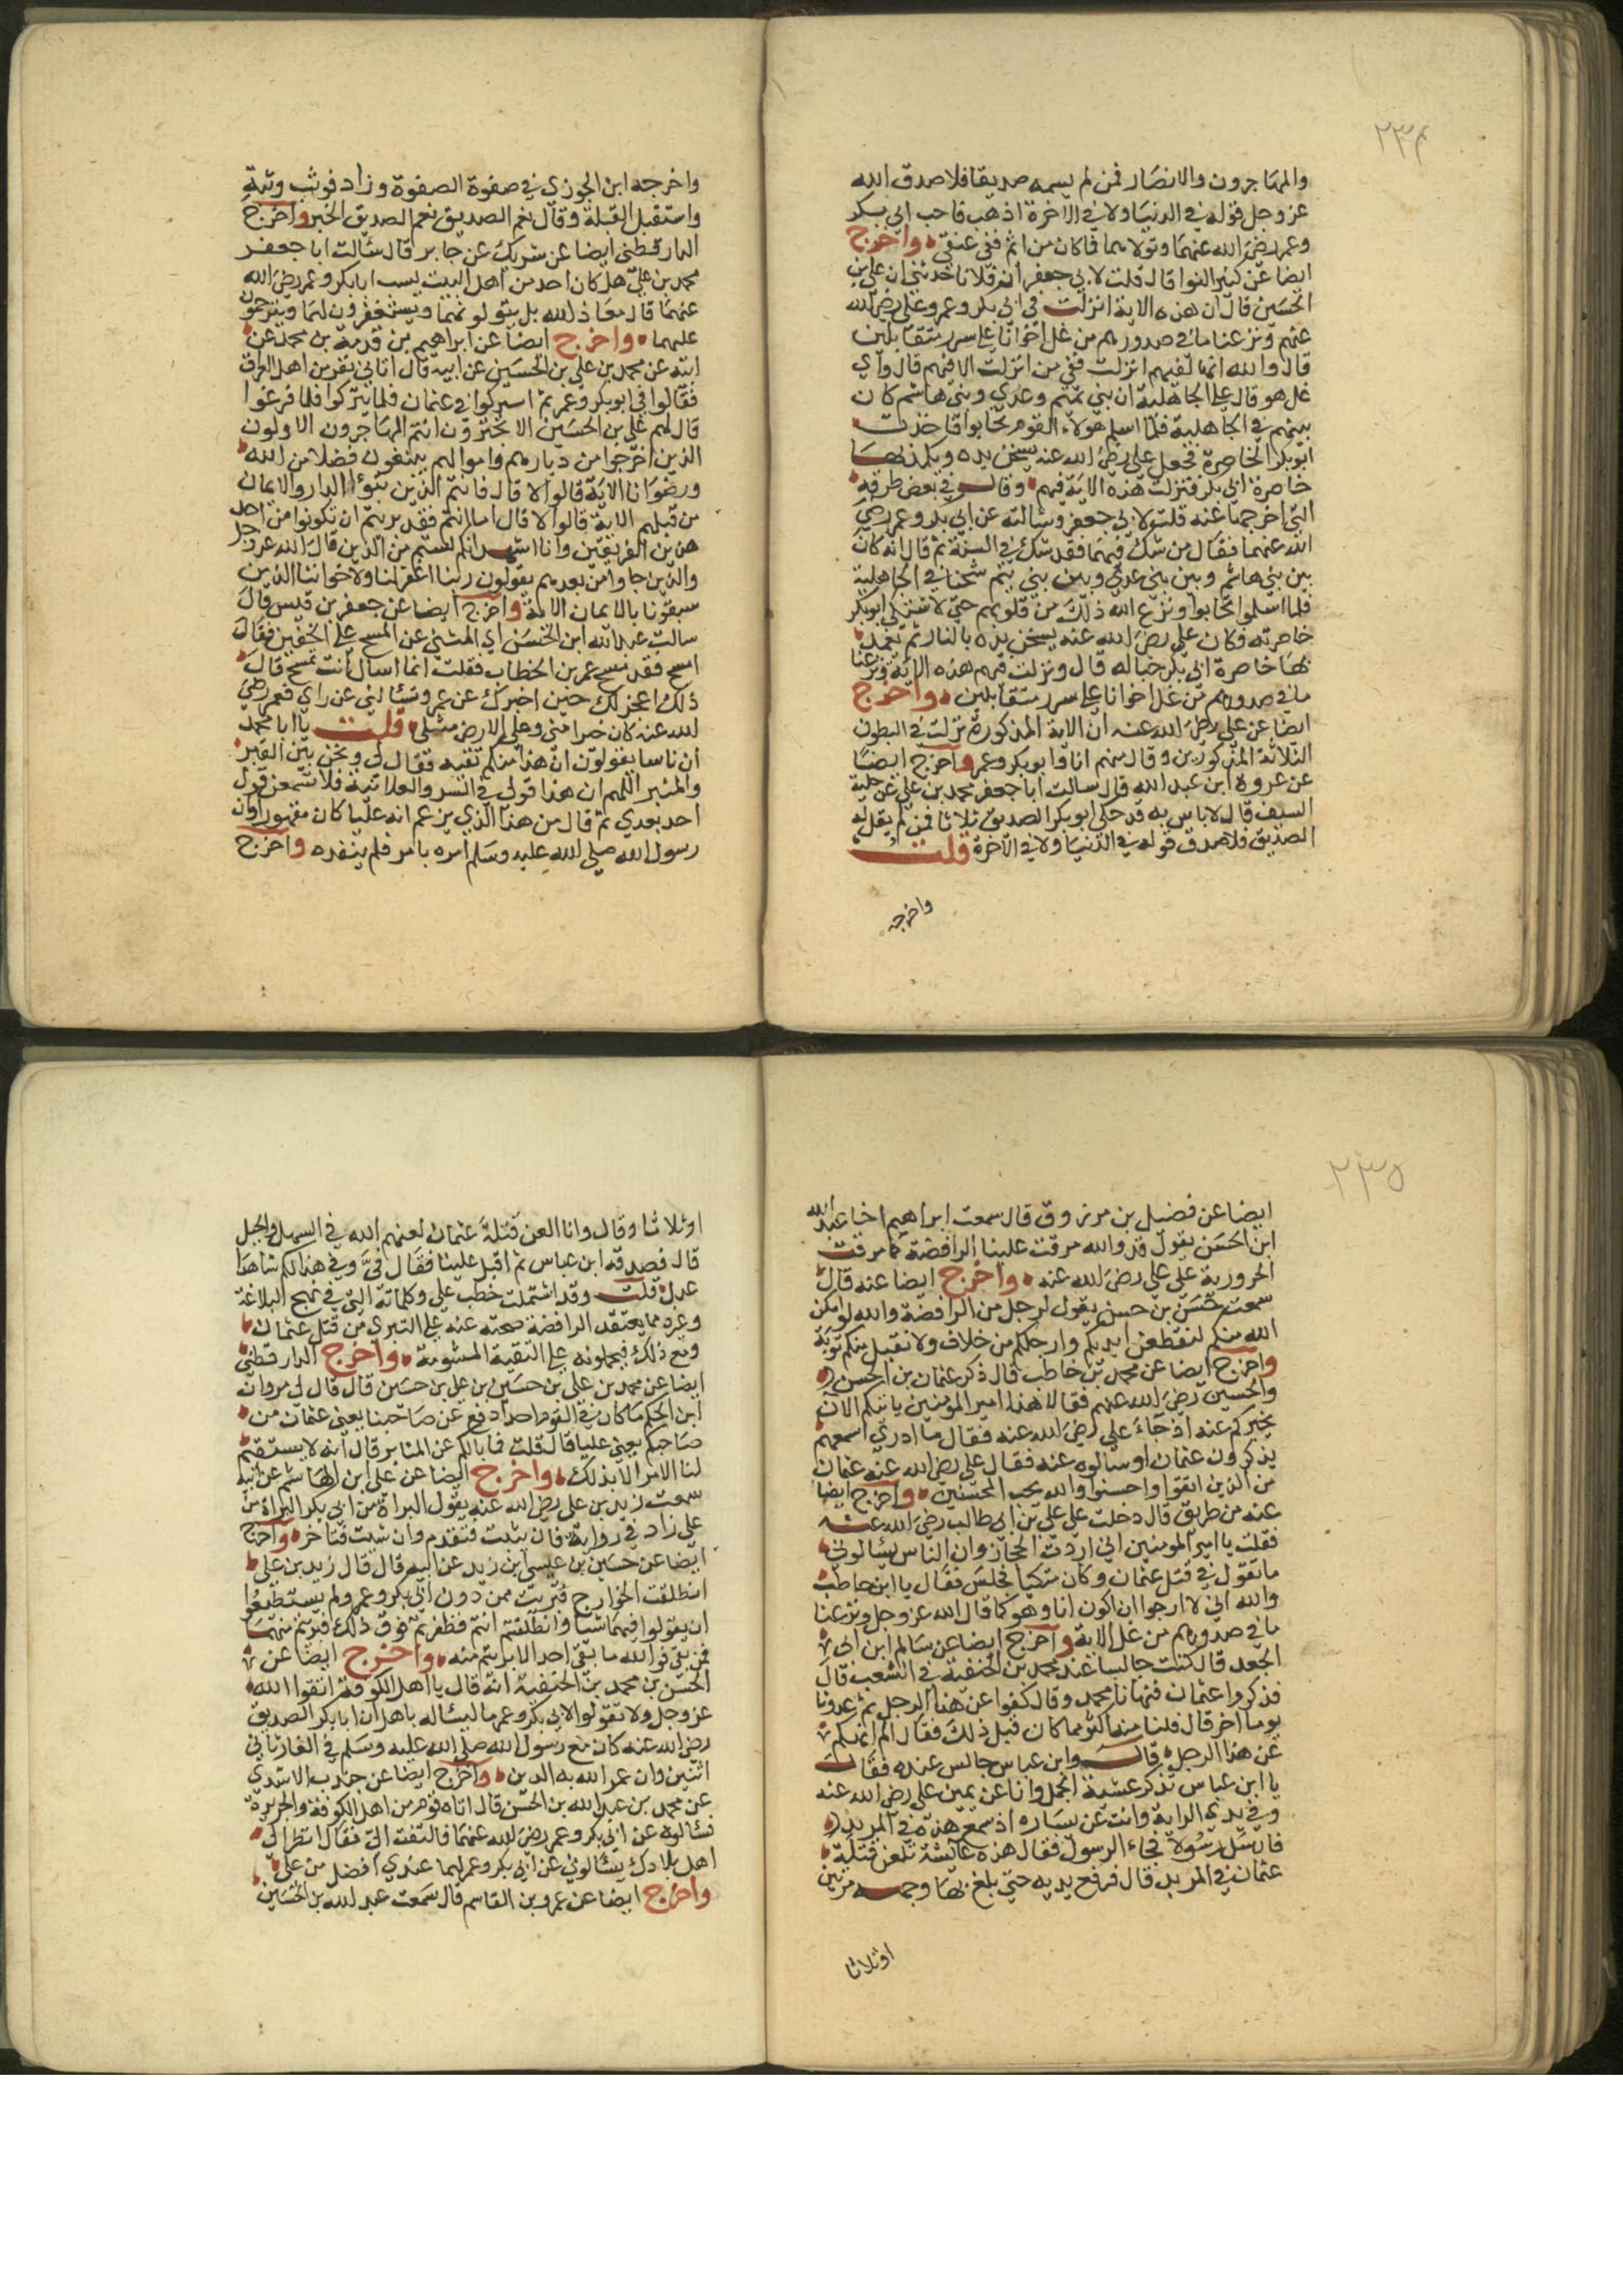 ٢٣٤
والمهاجرون والانصار فمن لم يسمه صديقا فلا صدق الله
عز وجل قوله في الدنيا ولا في الاخرة اذهب فاحب ابي بكر
وعمر رضي الله عنهما وتولاهما فما كان من اثم ففي عنقي واخرج
ايضا عن كثير النوا قال قلت لابي جعفر ان فلانا حدثني ان علي بن
الحسين قال ان هذه الاية انزلت في ابي بكر وعمر وعلي رضي الله
عنهم ونزعنا ما في صدورهم من غل اخوانا على سرر متقابلين
قال والله انها لفيهم انزلت ففي من انزلت الا فيهم قال واي
غل هو قال غل الجاهلية ان بني تميم وعدي وبني هاشم كان
بينهم في الجاهلية فلما اسلم هولاء القوم تحابوا فاخذت
ابو بكر الخاصرة فجعل علي رضي الله عنه يسخن يده ويكمد بها
خاصرة ابي بكر فنزلت هذه الاية فيهم وقال في بعض طرقه
التي اخرجها عنه قلت لابي جعفر وسالته عن ابي بكر وعمر رضي
الله عنهما فقال من شك فيهما فقد شك في السنة ثم قال انه كان
بين بني هاشم وبين بني عدي وبين بني تيم شحنا في الجاهلية
فلما اسلموا تحابوا ونزع الله ذلك من قلوبهم حتى لاشتكى ابو بكر
خاصرته فكان علي رضي الله عنه يسخن يده بالنار ثم يكمد
بها خاصرة ابي بكر حبا له قال ونزلت فيهم هذه الاية ونزعنا
ما في صدورهم من غل اخوانا على سرر متقابلين واخرج
ايضا عن علي رضي الله عنه ان الاية المذكورة نزلت في البطون
الثلاثة المذكورين وقال منهم انا وابو بكر وعمر واخرج ايضا
عن عروة ابن عبد الله قال سالت ابا جعفر محمد بن علي عن حلية
السيف قال لا باس به قد حلى ابو بكر الصديق ثلاثا فمن لم يقل له
الصديق فلا صدق قوله في الدنيا ولا في الاخرة قلت
واخرجه
واخرجه ابن الجوزي في صفوة الصفوة وزاد فوثب وثبة
واستقبل القبلة وقال نعم الصديق نعم الصديق الخبر واخرج
الدارقطني ايضا عن شريك عن جابر قال سالت ابا جعفر
محمد بن علي هل كان احد من اهل البيت يسب ابا بكر وعمر رضي الله
عنهما قال معاذ الله بل يتولونهما ويستغفرون لهما ويترحمون
عليهما واخرج ايضا عن ابراهيم بن قدمة بن محمد عن
ابيه عن محمد بن علي بن الحسين عن ابيه قال اتاني نفر من اهل العراق
فقالوا في ابو بكر وعمر ثم ابتركوا في عثمان فلما فرغوا
قال لهم علي بن الحسين الا تخبروني انتم المهاجرون الاولون
الذين اخرجوا من ديارهم واموالهم يبتغون فضلا من الله
ورضوانا الاية قالوا لا قال فانتم الذين تبوؤا الدار والايمان
من قبلهم الاية قالوا لا قال اما انتم فقد بريتم ان تكونوا من احد
هذين الفريقين وانا اشهد انكم لستم من الذين قال الله عز وجل
والذين جاوا من بعدهم يقولون ربنا اغفر لنا ولاخواننا الذين
سبقونا بالايمان الاية واخرج ايضا عن جعفر بن قيس قال
سالت عبد الله ابن الحسن اي المثنى عن المسح على الخفين فقال
امسح فقد مسح عمر بن الخطاب فقلت انما اسال انت تمسح قال
ذلك اعجز لك حين اخبرك عن عمر وتسالني عن راي فعمر رضي
الله عنه كان خيرا مني وملء الارض مثلي قلت يا ابا محمد
ان ناسا يقولون ان هذا منكم تقية فقال لي ونحن بين القبر
والمنبر اللهم ان هذا قولي في السر والعلانية فلا تسمعن قول
احد بعدي ثم قال من هذا الذي يزعم انه عليا كان مقهورا وان
رسول الله صلى الله عليه وسلم امره بامر فلم ينفذه واخرج
٢٣٥
ايضا عن فضيل بن مرزوق قال سمعت ابراهيم اخا عبد الله
ابن الحسن يقول قد والله مرقت علينا الرافضة كما مرقت
الحرورية على علي رضي الله عنه واخرج ايضا عنه قال
سمعت حسن بن حسن يقول لرجل من الرافضة والله لو امكن
الله منكم لنقطعن ايديكم وارجلكم من خلاف ولا نقبل منكم توبة
واخرج ايضا عن محمد بن حاطب قال ذكر عثمان بن الحسن
والحسين رضي الله عنهم فقالا هذا امير المومنين ياتيكم الان
يخبركم عنه اذ جاء علي رضي الله عنه فقال ما ادري اسمعهم
يذكرون عثمان او سالوه عنه فقال علي رضي الله عنه عثمان
من الذين اتقوا واحسنوا والله يحب المحسنين واخرج ايضا
عنه من طريق قال دخلت على علي بن ابي طالب رضي الله عنه
فقلت يا امير المومنين اني اردت الحجاز وان الناس يسالوني
ما تقول في قتل عثمان وكان متكيا فجلس فقال يا ابن حاطب
والله اني لارجوا ان اكون انا وهو كما قال الله عز وجل ونزعنا
ما في صدورهم من غل الاية واخرج ايضا عن سالم ابن ابي
الجعد قال كنت جالسا عند محمد بن الحنفية في الشعب قال
فذكروا عثمان فنهانا محمد وقال كفوا عن هذا الرجل ثم غدونا
يوما اخر قال فلنا منه اكثر مما كان قبل ذلك فقال الم انهكم
عن هذا الرجل قال وابن عباس جالس عنده فقال
يا ابن عباس تذكر عشية الجمل وانا عن يمين علي رضي الله عنه
وفي يدي الراية وانت عن يساره اذ سمع هدة في المربد
فارسل رسولا فجاء الرسول فقال هذه عايشة تلعن قتلة
عثمان في المربد قال فرفع يديه حتى بلغ بهما وجهه مرتين
او ثلاثا
او ثلاثا وقال وانا العن قتلة عثمان لعنهم الله في السهل والجبل
قال فصدقه ابن عباس ثم اقبل علينا فقال في وفي هذا لكم شاهدا
عدل قلت وقد اشتملت خطب علي وكلماته التي في نهج البلاغة
وغيره مما يعتقد الرافضة صحته عنه على التبري من قتل عثمان
ومع ذلك فيحملونه على التقية المشومة واخرج الدارقطني
ايضا عن محمد بن علي بن حسين ابن علي بن حسين قال قال لي مروان
ابن الحكم ما كان في القوم احد ادفع عن صاحبنا يعني عثمان من
صاحبكم يعني عليا قال قلت فما بالكم عن المنابر قال انه لا يستقيم
لنا الامر الا بذلك واخرج ايضا عن علي ابن الهاشم عن ابيه
سمعت زيد بن علي رضي الله عنه يقول البراة من ابي بكر البراة من
علي زاد في رواية فان شئت فتقدم وان شيت فتاخر واخرج
ايضا عن حسين بن عيسى ابن زيد عن ابيه قال قال زيد بن علي
انطلقت الخوارج فبريت ممن دون ابي بكر وعمر ولم يستطيعوا
ان يقولوا فيهما شيا وانطلقتم انتم فظفرتم فوق ذلك فبريتم منهما
فمن بقي فوالله ما بقي احد الا بريتم منه واخرج ايضا عن
الحسن بن محمد بن الحنفية انه قال يا اهل الكوفة اتقوا الله
عز وجل ولا تقولوا لابي بكر وعمر ما ليسا له باهل ان ابا بكر الصديق
رضي الله عنه كان مع رسول الله صلى الله عليه وسلم في الغار ثاني
اثنين وان عمر الله به الدين واخرج ايضا عن جندب الاسدي
عن محمد بن عبد الله بن الحسن قال اتاه قوم من اهل الكوفة والجزيرة
فسالوه عن ابي بكر وعمر رضي الله عنهما فالتفت الي فقال انظر الى
اهل بلادك يسالوني عن ابي بكر وعمر لهما عندي افضل من علي
واخرج ايضا عن عمرو بن القاسم قال سمعت عبد الله بن الحسين